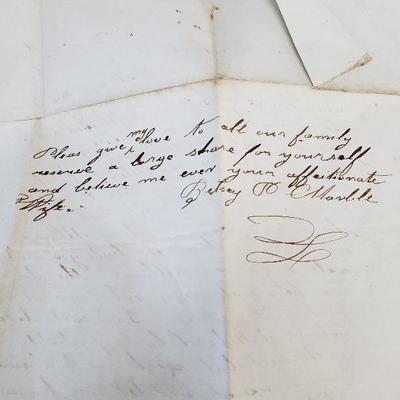 Pleas give my love to all our family
reserve a large share for yourself
and believe me ever your affectionate
Wife. Betsey D Marble